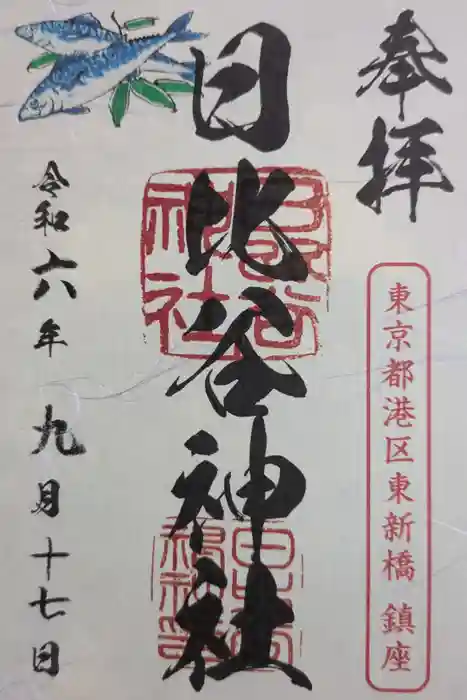 奉拝
東京都港区東新橋 鎮座
日比谷神社
令和六年 九月十七日